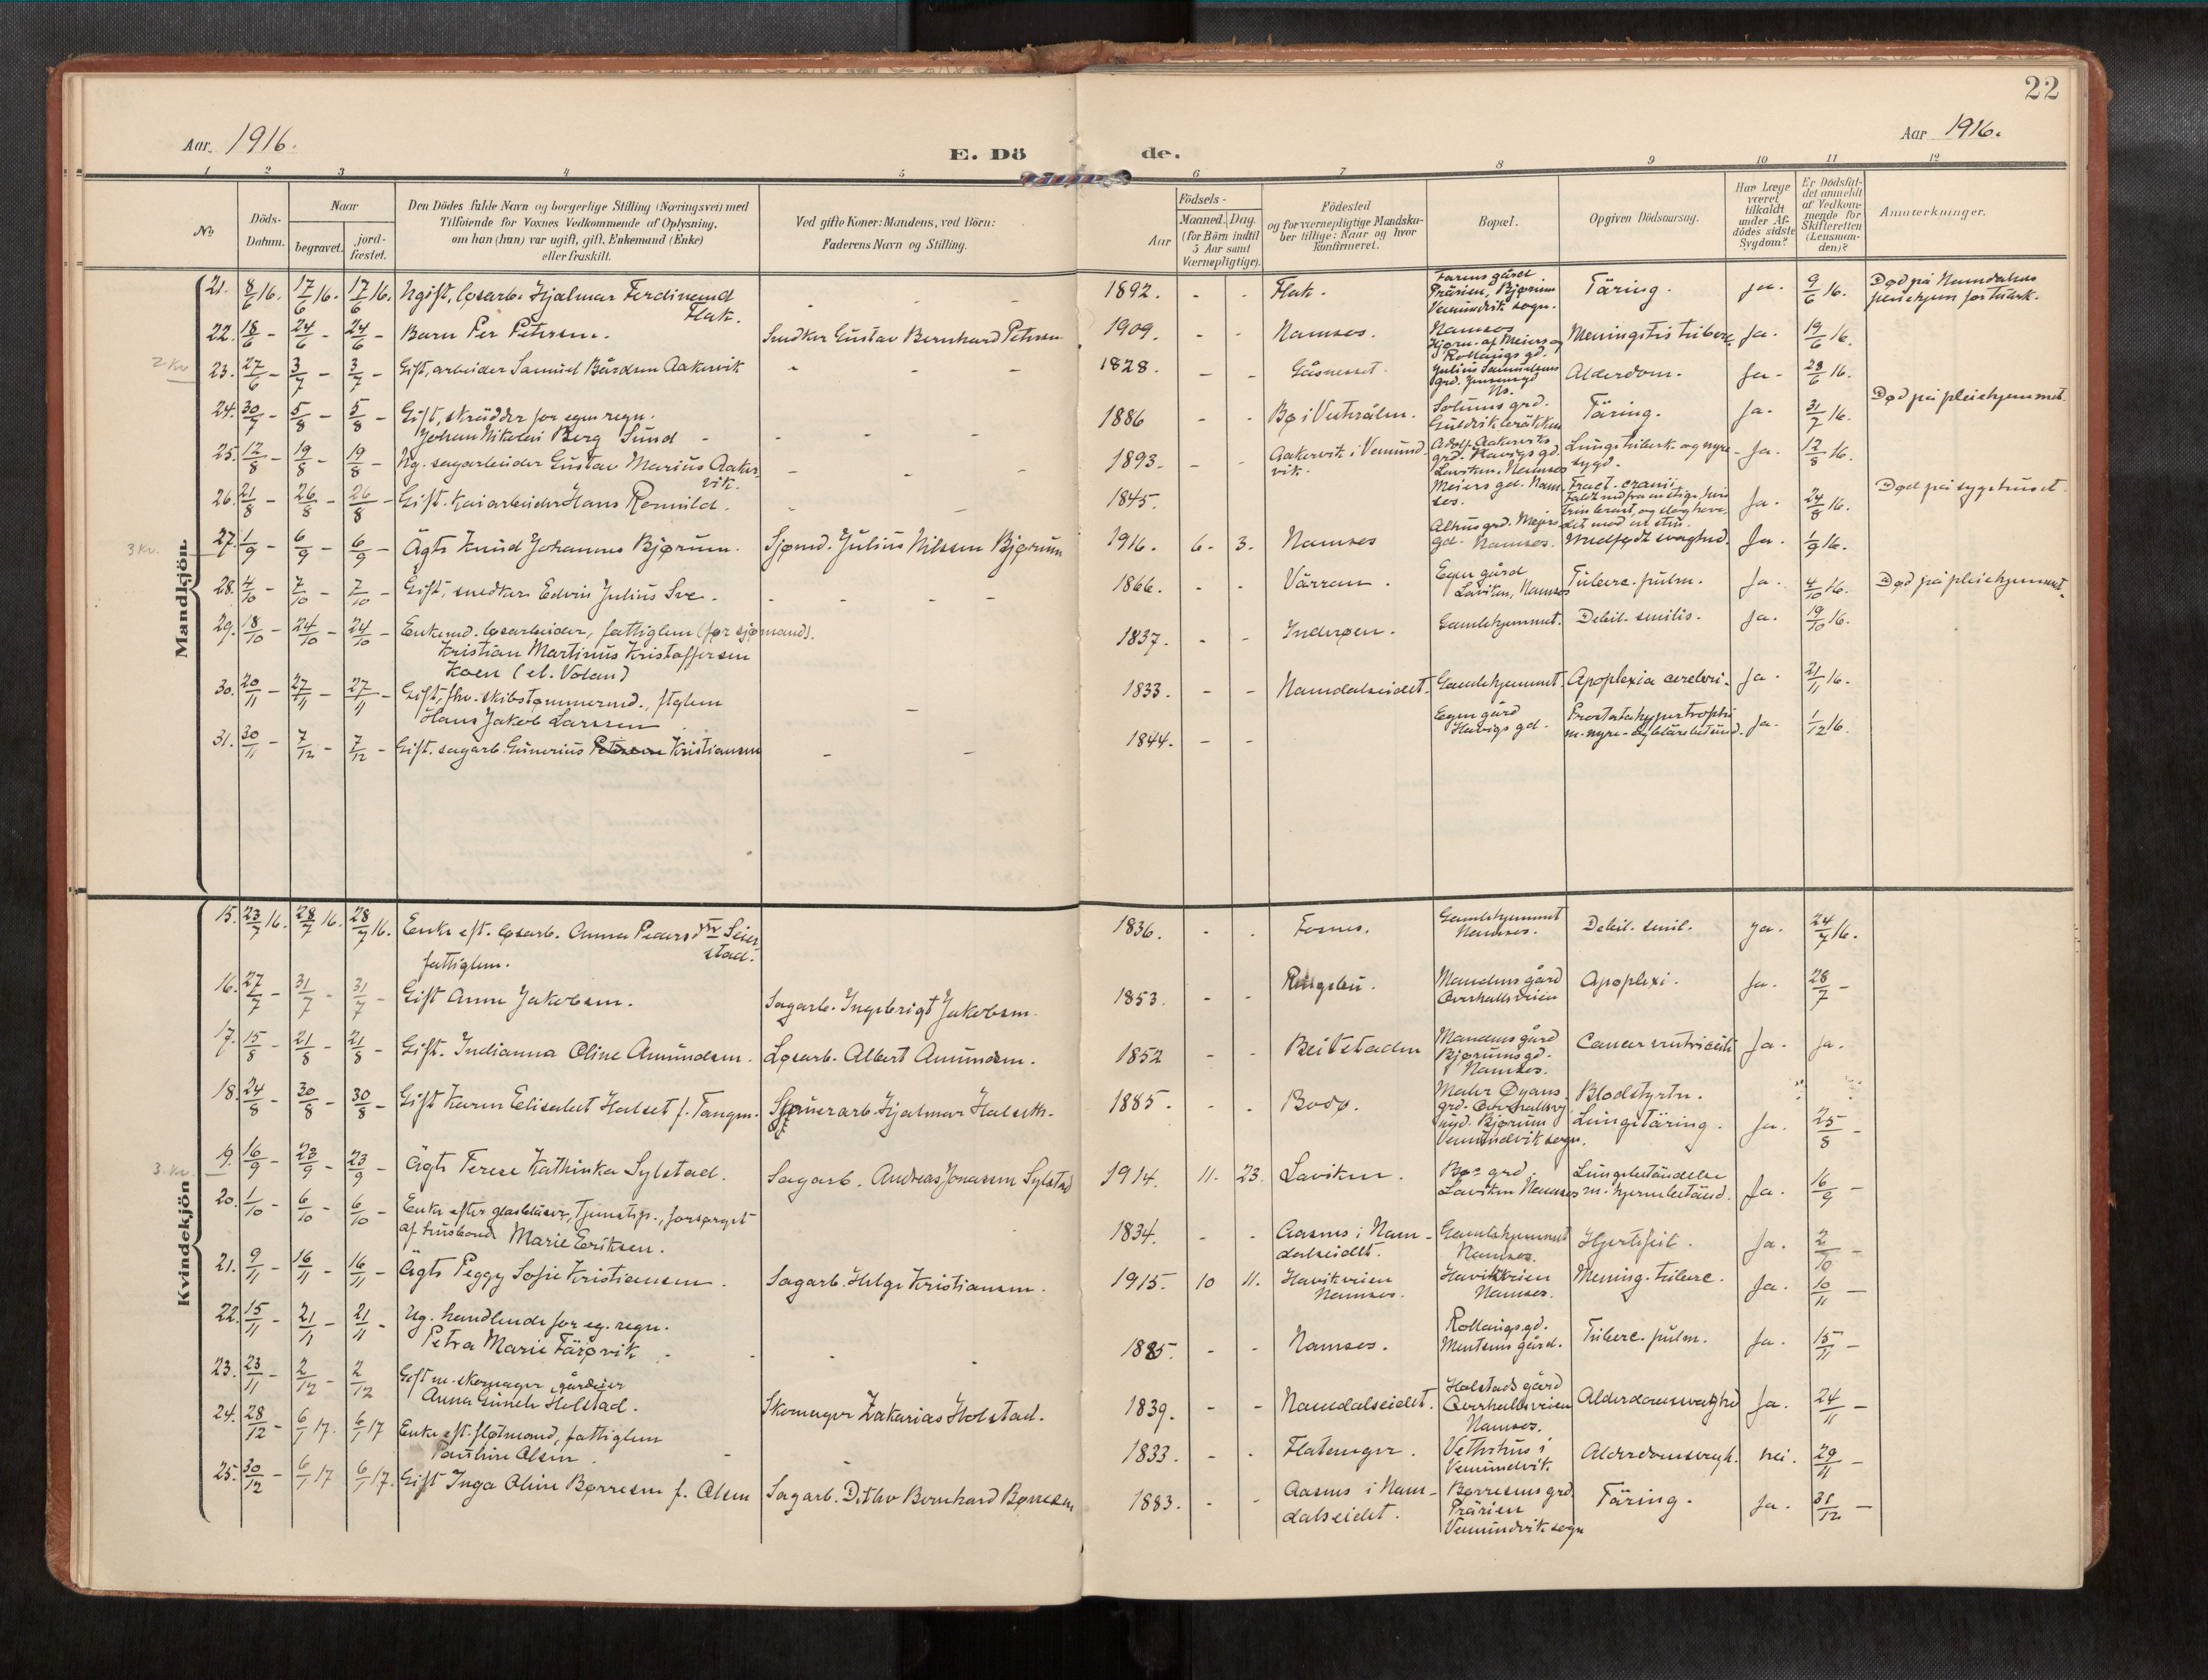 22
Aar 1916.
Aar 1916.
E. Dö de.
1 2 3 4 5 6 7 8 9 10 11 12
No
Döds-Datum.
Naar
begravet.
jord-fæstet.
Den Dödes fulde Navn og borgerlige Stilling (Næringsvei) med
Tilföiende for Voxnes Vedkommende af Oplysning,
om han (hun) var ugift, gift, Enkemand (Enke)
eller fraskilt.
Ved gifte Koner: Mandens, ved Börn:
Faderens Navn og Stilling.
Födsels-
Aar
Maaned. Dag.
(for Börn indtil
5 Aar samt
Værnepligtige).
Födested
og for værnepligtige Mandska-
ber tillige: Naar og hvor
konfirmeret.
Bopæl.
Opgiven Dödsaarsag.
Har Læge
været
tilkaldt
under Af-
dödes sidste
Sygdom?
Er Dödsfal-
det anmeldt
af Vedkom-
mende for
Skifteretten
(Lensman-
den)?
Anmærkninger.
Mandkjön.
21. 8/6 16. 17/6 16. 17/6 16. Ugift, løsarb. Hjalmar Ferdinand Flak. - - - 1892. - - Flak. Farens gård Prärien, Bjørum Vemundvik sogn. Täring. ja. 9/6 16. Død på Namdalens pleiehjem for tuberk.
22. 18/6 - 24/6 - 24/6 - Barn Per Petersen. Snedker Gustav Bernhard Petersen 1909. - - Namsos. Namsos Hjørn. af Meiers og Rollaugs gd. Meningitis tuberc. Ja. 19/6 16.
2 Kv
23. 27/6 - 3/7 - 3/7 - Gift, arbeider Samuel Bårdsen Aakervik - - - 1828. - - Gåsneset. Julius Samuelsens grd. Ns. Alderdom. Ja - 28/6 16.
24. 30/7 - 5/8 - 5/8 - Gift, skrädder for egen regn. Johan Nikolai Berg Sund - - - 1886 - - Bø i Vesterålen. Solums grd. Täring. Ja. 31/7 16. Død på pleiehjemmet.
25. 12/8 - 19/8 - 19/8 - Ug. sagarbeider Gustav Marius Aakervik. - - - 1893. - - Aakervik i Vemundvik. Adolf Aakerviks grd. Havigs gd. Laviken, Namsos Lungetuberk. og nyresygd. Ja. 12/8 16.
26. 21/8 - 26/8 - 26/8 - Gift. Kaiarbeider Hans Romuld. - - 1845. Meiers gd. Namsos. Fract. cranii Faldt ned fra en stige, hvis trin brast, og slog hovedet mod en sten. Ja. 24/8 16. Død på sygehuset.
3 Kv.
27. 1/9 - 6/9 - 6/9 - Ägte Knud Johannes Bjørum. Sjømd. Julius Nilssen Bjørum 1916. 6. 3. Namsos gd. Namsos. Medfødt svaghed. Ja. 1/9 16.
28. 4/10 - 7/10 - 7/10 - Gift, snedker Edvin Julius Sve. - - - - 1866. - - Värran. Egen gård Laviken, Namsos Tuberc. pulm. Ja. 4/10 16. Død på pleiehjemmet.
29. 18/10 - 24/10 - 24/10 - Enkemd. løsarbeider, fattiglem (før sjømand). Kristian Martinus Kristoffersen Koen (el. Volan) 1837. - - Inderøen. Gamlehjemmet. Debil. senilis. Ja. 19/10 16.
30. 20/11 - 27/11 - 27/11 - Gift, fhv. skibstømmermd., ftglem Hans Jakob Larssen - 1833. - - Namdalseidet. Gamlehjemmet. Apoplexia cerebri. Ja. 21/11 16.
31. 30/11 - 7/12 - 7/12 - Gift. sagarb. Gunerius Petersen Kristiansen - - 1844. - - Egen gård Havigs gd. Prostatahypertrophi m. nyre- og blärebetänd. Ja. 1/12 16.
Kvindekjön
15. 23/7 16. 28/7 16. 28/7 16. Enke eft. løsarb. Anna Pedersdtr Seierstad. fattiglem. 1836. - - Fosnes. Gamlehjemmet Namsos. Debil. senil. ja. 24/7 16.
16. 27/7 - 31/7 - 31/7 - Gift Anne Jakobsen. Sagarb. Ingebrigt Jakobsen. 1853. - - Ringebu. Mandens gård Overhallsveien Apoplexi. Ja. 28/7 -
17. 15/8 - 21/8 - 21/8 - Gift. Indianna Oline Amundsen. Løsarb. Albert Amundsen. 1852 - - Beitstaden Mandens gård Bjørumsgd. Namsos. Cancer ventriculi Ja. ja.
18. 24/8 - 30/8 - 30/8 - Gift Karen Elisabet Halset f. Tangen. Hjalmar Halseth. 1885. - - Bodø. Bjørum Vemundvik sogn. Blodstyrtn. Lungetäring. Ja. 25/8 -
3. Kv.
9. 16/9 - 23/9 - 23/9 - Ägte Terese Kathinka Sylstad. Sagarb. Andreas Jonassen Sylstad 1914. 11. 23. Laviken. grd. Laviken Namsos Lungebetändelse m. hjernebetänd. Ja. 16/9 -
20. 1/10 - 6/10 - 6/10 - Enke efter glasbläser, Tjenestep., forsørget af husbond Marie Eriksen. 1834. - - Aasnes i Namdalseidet. Gamlehjemmet Namsos. Hjertefeil. Ja. 2/10 -
21. 9/11 - 16/11 - 16/11 - Ägte Peggy Sofie Kristiansen. Sagarb. Helge Kristiansen. 1915. 10 11. Havikveien Namsos. Havikveien Namsos. Mening. tuberc. Ja. 10/11 -
22. 15/11 - 21/11 - 21/11 - Ug. handlende for eg. regn. Petra Marie Färøvik - - - 1885. - - Namsos. Rollaugsgd. Mentsens gård. Tuberc. pulm. Ja. 15/11 -
23. 23/11 - 2/12 - 2/12 Gift m. skomager, gårdeier Anna Gunele Holstad. Skomager Zakarias Holstad. 1839. - - Namdalseidet. Holstads gård Overhallsveien Namsos. Alderdomssvaghed Ja. 24/11 -
24. 28/12 - 6/1 17. 6/1 17 Enke eft. fløtmand, fattiglem Pauline Olsen. - - 1833. - - Flatanger. Vetrhus i Vemundvik Alderdomssvagh. nei. 29/11 -
25. 30/12 - 6/1 17 6/1 17. Gift Inga Oline Børresen f. Olsen Sagarb. Ditlev Bernhard Børresen 1883. - - Aasnes i Namdalseidet. Børresens grd. Prärien Vemundvik sogn Täring. Ja. 31/12 -